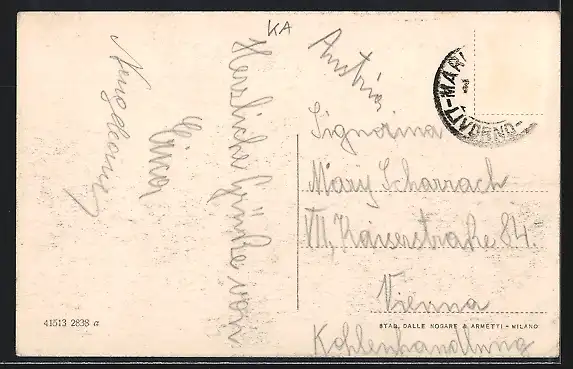 KA
Herzliche Grüße vom
Austria
Signorina
Mary Scharrach
VII, Kaiserstraße 84.
Vienna
Kohlenhandlung
LIVORNO
41513 2838 a
STAB. DALLE NOGARE & ARMETTI - MILANO